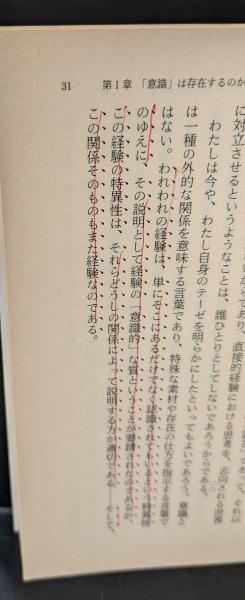 31　第1章　「意識」は存在するのか
に対立させるというようなことは、誰ひとりとしてしないであろうからである。
わたしは今や、わたし自身のテーゼを明らかにしたといってもよいであろう。意識と
は一種の外的な関係を意味する言葉であり、特殊な素材や存在の仕方を指示する言葉で
はない。われわれの経験は、単にそこにあるだけでなく認識されてもいるという特異性
のゆえに、その説明として経験の「意識的」な質ということが要請されたのであるが、
この経験の特異性は、それらどうしの関係によって説明する方が適切である――そして、
この関係そのものもまた経験なのである。